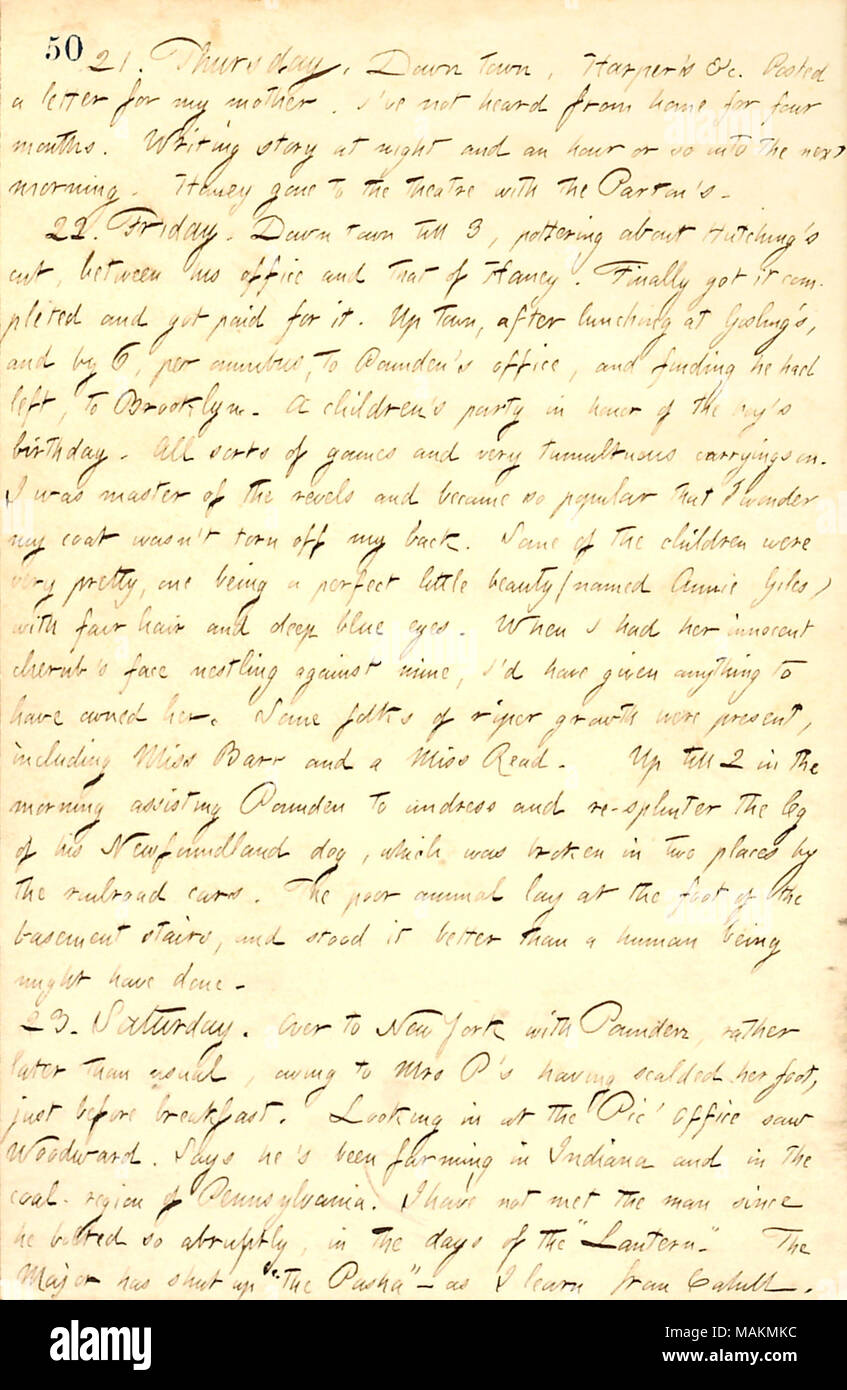 50
21. Thursday. Down town, Harper's &c. Posted
a letter for my mother. I've not heard from home for four
months. Writing story at night and an hour or so into the next
morning. Haney gone to the theatre with the Parton's.
22. Friday. Down town till 3, pottering about Hutching's
cut, between his office and that of Haney. Finally got it com-
pleted and got paid for it. Up town, after lunching at Gosling's,
and by 6, per omnibus, to Pounden's office, and finding he had
left, to Brooklyn. A children's party in honor of the boy's
birthday. All sorts of games and very tumultuous carryings on.
I was master of the revels and became so popular that I wonder
my coat wasn't torn off my back. Some of the children were
very pretty, one being a perfect little beauty (named Annie Giles)
with fair hair and deep blue eyes. When I had her innocent
cherub's face nestling against mine, I'd have given anything to
have owned her. Some folks of riper growth were present,
including Miss Barr and a Miss Read. Up till 2 in the
morning assisting Pounden to undress and re-splinter the leg
of his Newfoundland dog, which was broken in two places by
the railroad cars. The poor animal lay at the foot of the
basement stairs, and stood it better than a human being
might have done.
23. Saturday. Over to New York with Pounden, rather
later than usual, owing to Mrs P's having scalded her foot,
just before breakfast. Looking in at the "Pic" office saw
Woodward. Says he's been farming in Indiana and in the
coal-region of Pennsylvania. I have not met the man since
he bolted so abruptly, in the days of the "Lantern." The
Major has shut up "the Pasha" — as I learn from Cahill.
alamy
Image ID: MAKMKC
www.alamy.com